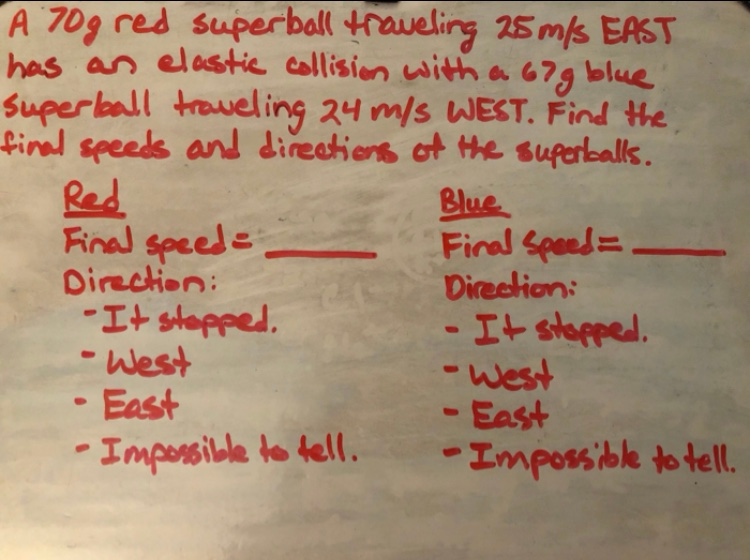 A 70g red superball traveling 25 m/s EAST
has an elastic collision with a 67g blue
superball traveling 24 m/s WEST. Find the
final speeds and directions of the superballs.
Red
Final speed = ______
Direction:
- It stopped.
- West
- East
- Impossible to tell.
Blue
Final Speed = ______
Direction:
- It stopped.
- West
- East
- Impossible to tell.